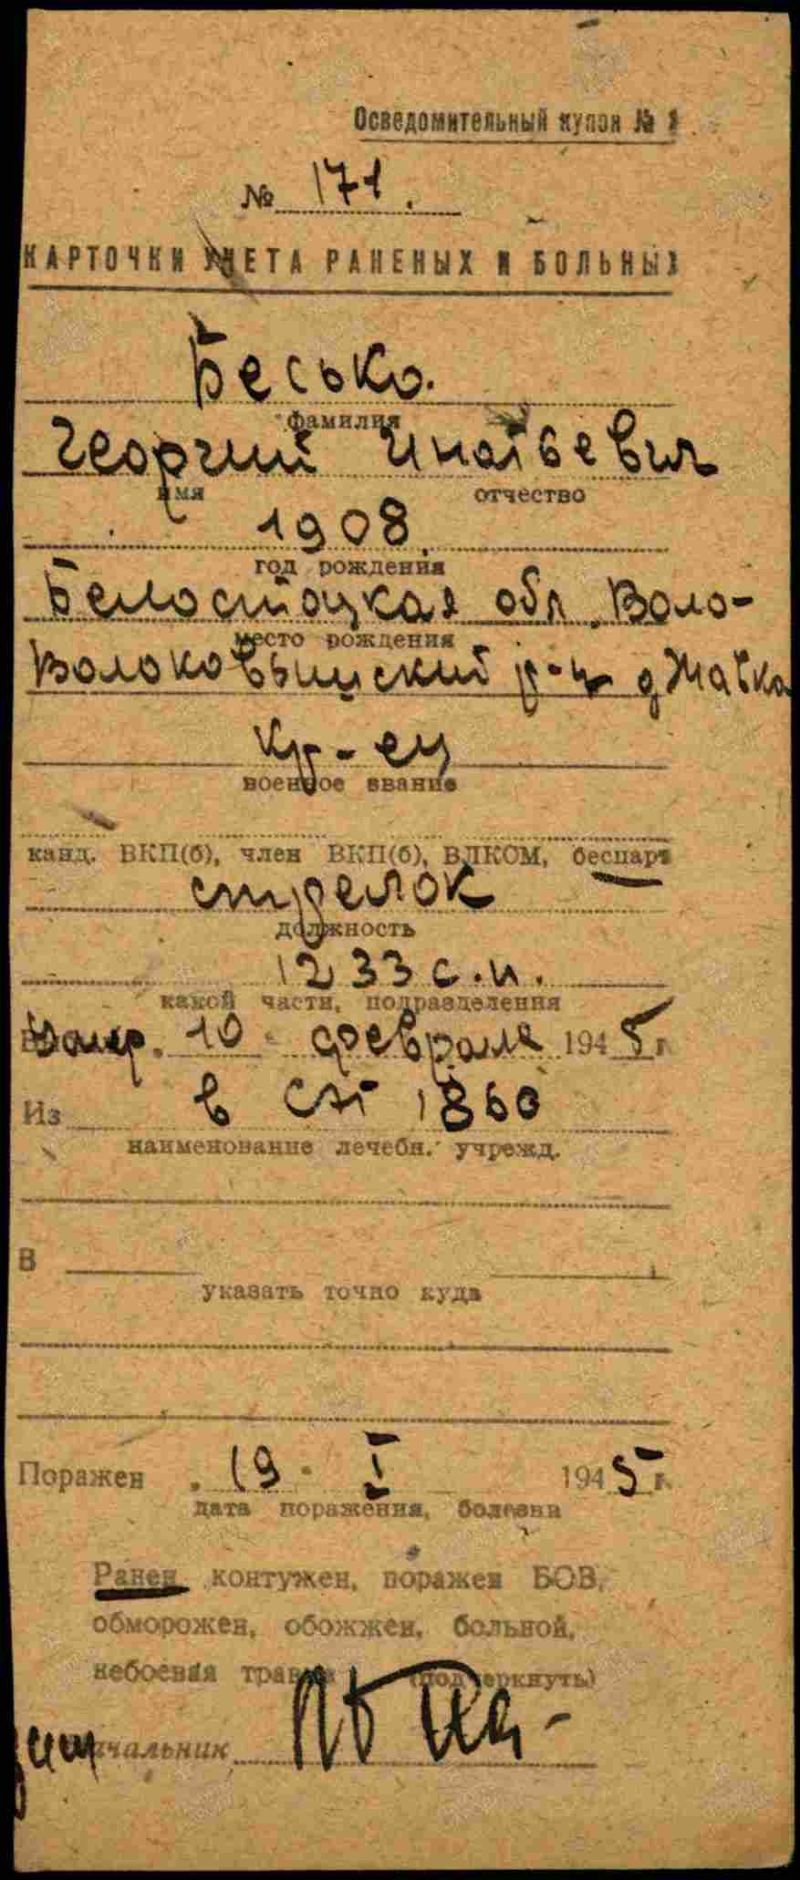 Осведомительный купон №
№ 171.
КАРТОЧКИ УЧЕТА РАНЕНЫХ И БОЛЬНЫХ
Бесько.
фамилия
Георгий Игнатьевич
имя отчество
1908
год рождения
Белостоцкая обл. Воло-
место рождения
Волоковышский р-н д Жавка
кр-ец
военное звание
канд. ВКП(б), член ВКП(б), ВЛКОМ, беспарт
стрелок
должность
1233 с.п.
какой части, подразделения
Умер. 10 февраля 1945 г.
Из в СЛГ 1860
наименование лечебн. учрежд.
В
указать точно куда
Поражен 19 I 1945 г.
дата поражения, болезни
Ранен контужен, поражен БОВ,
обморожен, обожжен, больной,
небоевая травма (подчеркнуть)
начальник